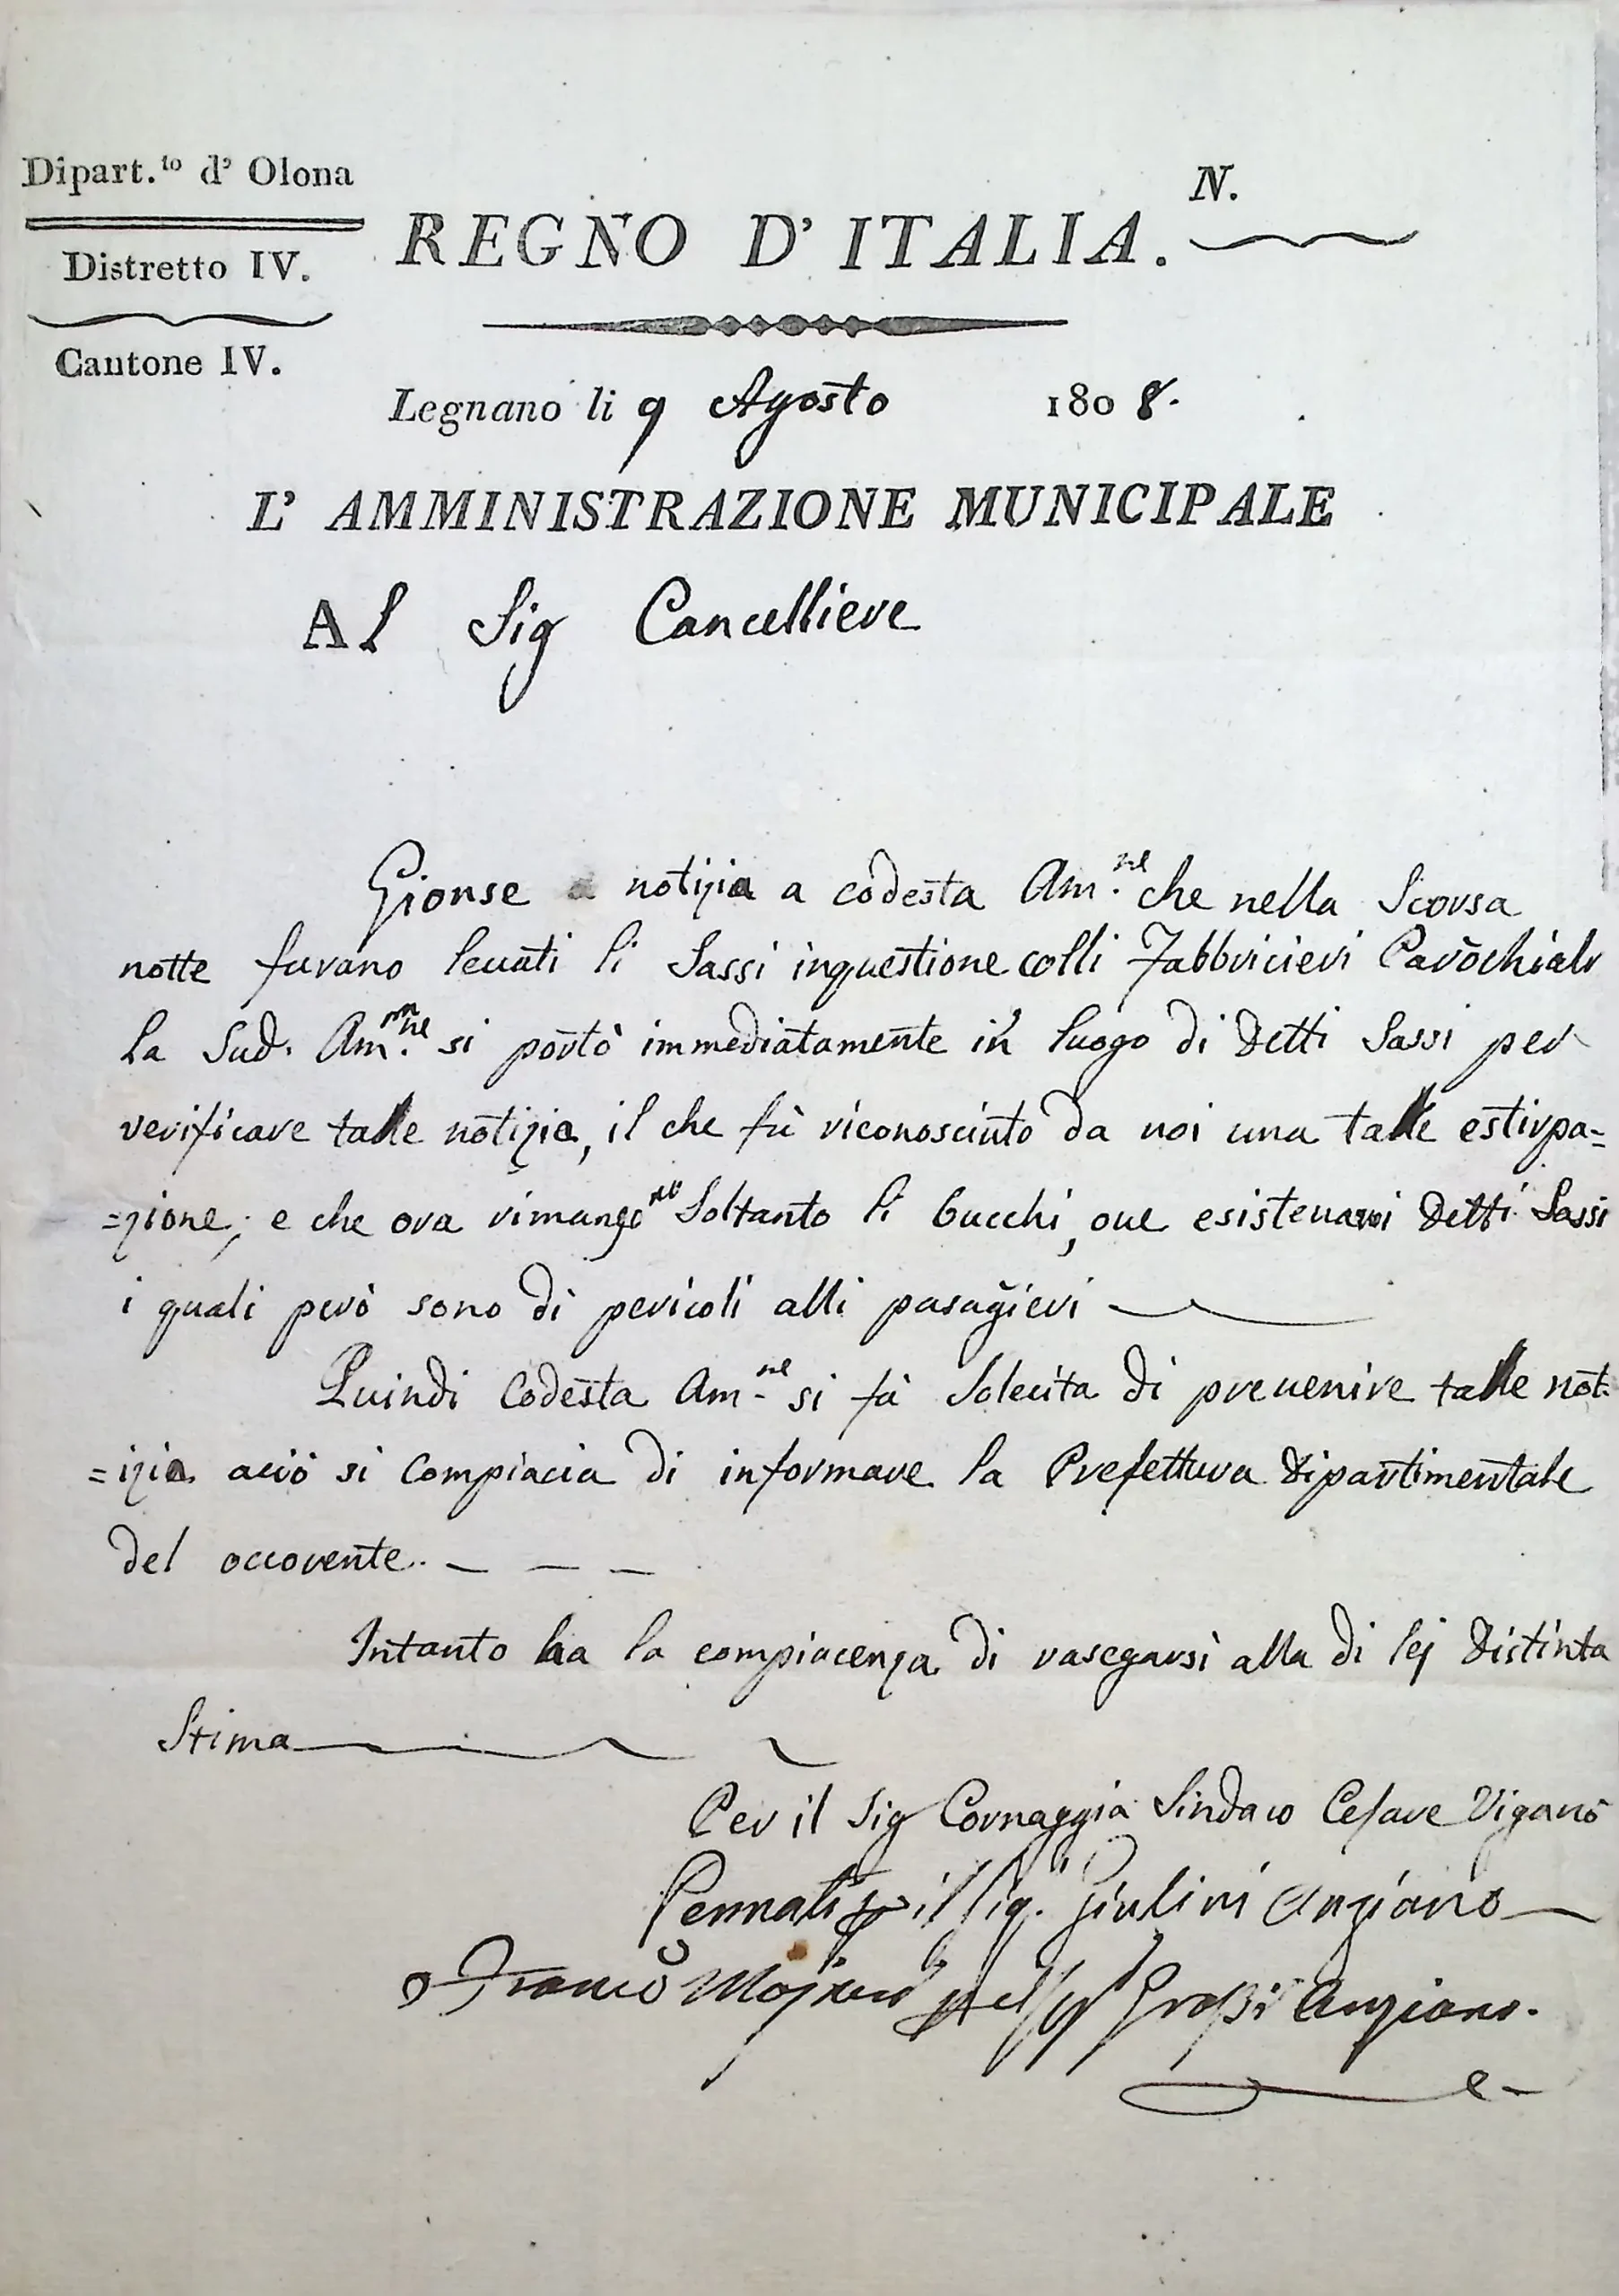 Dipart.to d' Olona
Distretto IV.
Cantone IV.
N.
REGNO D' ITALIA.
Legnano li 9 Agosto 1808.
L' AMMINISTRAZIONE MUNICIPALE
Al Sig Cancelliere
Gionse a notizia a codesta Am.ne che nella Scorsa
notte furano levati li Sassi inquestione colli Fabbricieri Parochiali
la Sud. Am.ne si portò immediatamente in luogo di detti Sassi per
verificare talle notizia, il che fù riconosciuto da noi una talle estirpa=
=zione; e che ora rimangono Soltanto li bucchi, ove esistevano detti Sassi
i quali però sono di pericoli alli pasagieri
Quindi Codesta Am.ne si fà Solecita di prevenire talle not=
=izia acciò si compiacia di informare la Prefettura Dipartimentale
del occorente.
Intanto ha la compiacenza di rasegarsi alla di lej distinta
Stima
Per il Sig Cornaggia Sindaco Cesare Viganò
Pennati p il Sig. Giulini Anziano
Franco pel Sig Grassi Anziano.